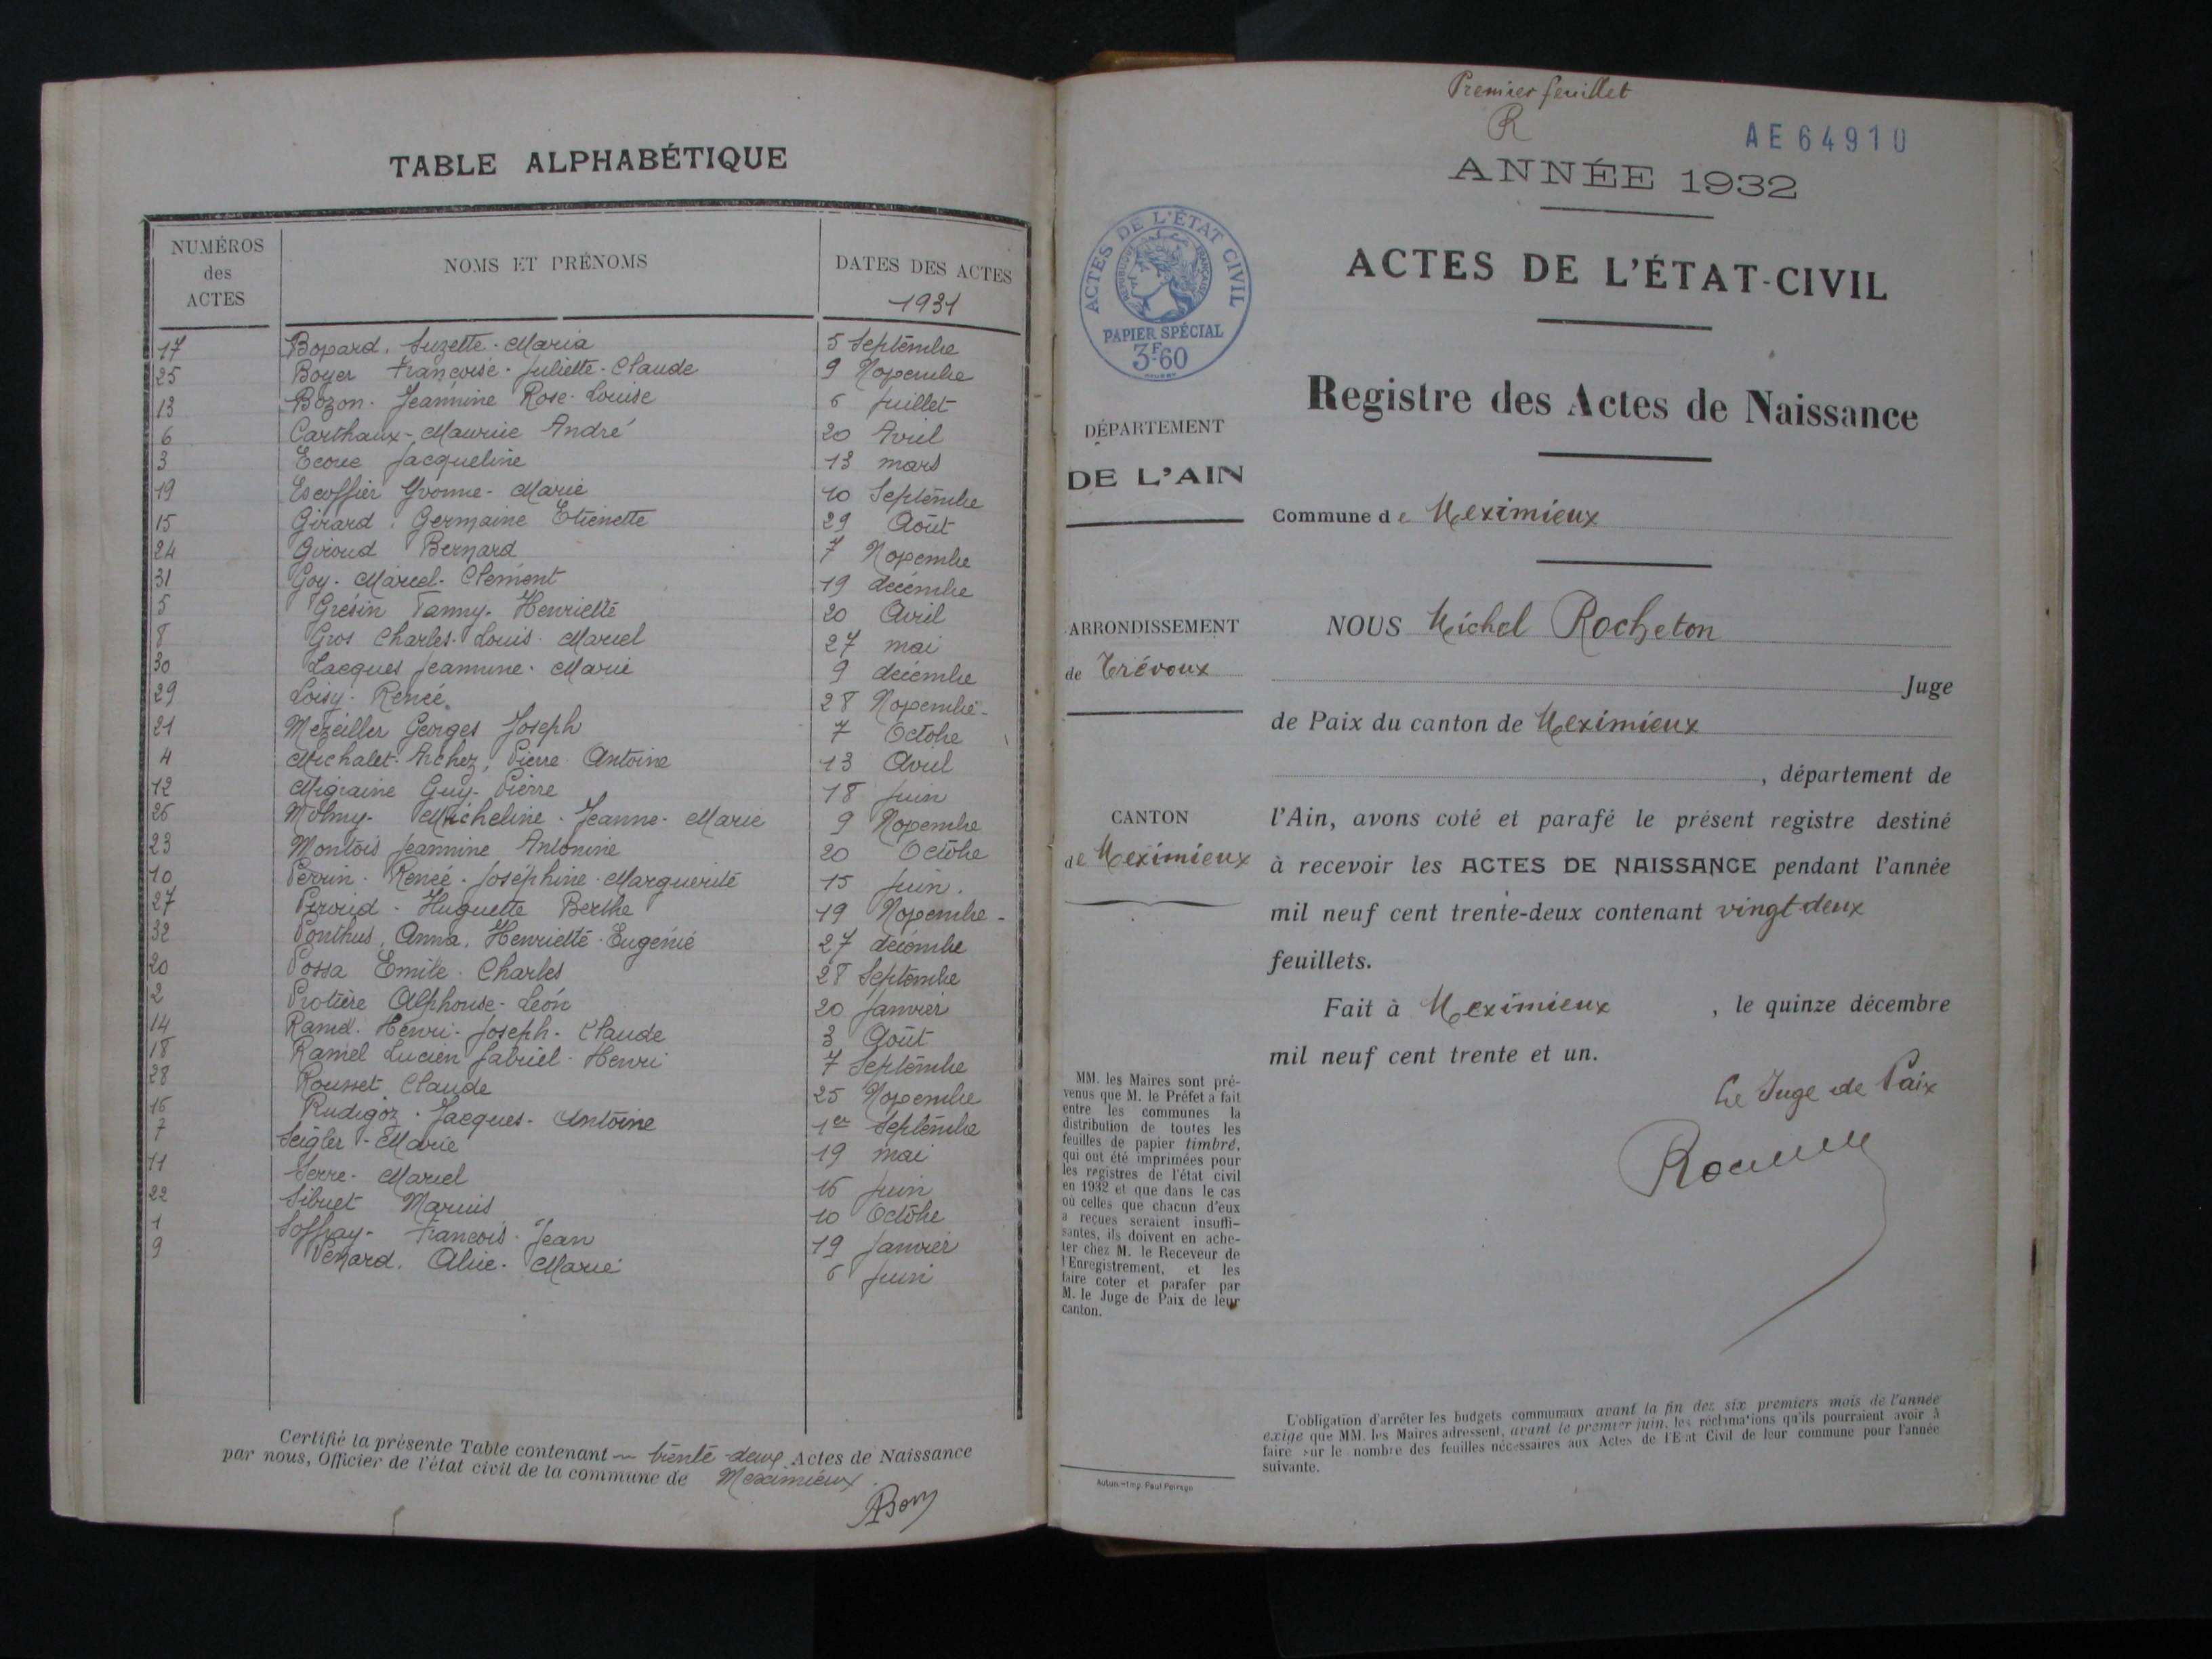 TABLE ALPHABÉTIQUE
NUMÉROS des ACTES
NOMS ET PRÉNOMS
DATES DES ACTES
1931
17 Bovard. Suzette - Maria 5 Septembre
25 Boyer Françoise - Juliette - Claude 9 Novembre
13 Bozon - Jeannine Rose - Louise 6 Juillet
6 Carthaux - Maurice André 20 Avril
3 Jacqueline 13 mars
19 Escoffier Yvonne - Marie 10 Septembre
15 Girard. Germaine Etienette 29 Août
24 Giroud Bernard 7 Novembre
31 Goy - Marcel - Clément 19 décembre
5 Grésin Fanny - Henriette 20 Avril
8 Gros Charles - Louis - Marcel 27 mai
30 Lacques Jeannine - Marie 9 décembre
29 Loisy - Renée 28 Novembre -
21 Mezeiller Georges Joseph 7 Octobre
4 Michalet - Pierre Antoine 13 Avril
12 Migraine Guy - Pierre 18 Juin
26 Molmy - Micheline - Jeanne - Marie 9 Novembre
23 Montois Jeannine Antonine 20 Octobre
10 Perrin - Renée - Joséphine - Marguerite 15 Juin.
27 Peroud - Huguette Berthe 19 Novembre -
32 Ponthus, Anna, Henriette - Eugénie 27 décembre
20 Possa Emile - Charles 28 Septembre
2 Protière Alphonse - Léon 20 Janvier
14 Ramel - Henri - Joseph - Claude 3 Août
18 Ramel Lucien Gabriel - Henri 7 Septembre
28 Rousset Claude 25 Novembre
16 Rudigoz - Jacques - Antoine 1er Septembre
7 Seigler - Marie 19 mai
11 Serre - Marcel 16 Juin
22 Sibuet Marius 10 Octobre
1 Soffray - François - Jean 19 Janvier
9 Venard. Alice - Marie 6 Juin
Certifié la présente Table contenant trente-deux Actes de Naissance
par nous, Officier de l'état civil de la commune de Meximieux.
Premier feuillet
R
AE 64910
ANNÉE 1932
ACTES DE L'ÉTAT CIVIL
RÉPUBLIQUE FRANÇAISE
PAPIER SPÉCIAL
3F60
ACTES DE L'ÉTAT-CIVIL
Registre des Actes de Naissance
DÉPARTEMENT
DE L'AIN
Commune de Meximieux
ARRONDISSEMENT
de Trévoux
CANTON
de Meximieux
NOUS Michel Rocheton
Juge
de Paix du canton de Meximieux
, département de
l'Ain, avons coté et parafé le présent registre destiné
à recevoir les ACTES DE NAISSANCE pendant l'année
mil neuf cent trente-deux contenant vingt deux
feuillets.
Fait à Meximieux , le quinze décembre
mil neuf cent trente et un.
Le Juge de Paix
MM. les Maires sont pré-
venus que M. le Préfet a fait
entre les communes la
distribution de toutes les
feuilles de papier timbré,
qui ont été imprimées pour
les registres de l'état civil
en 1932 et que dans le cas
où celles que chacun d'eux
a reçues seraient insuffi-
santes, ils doivent en ache-
ter chez M. le Receveur de
l'Enregistrement, et les
faire coter et parafer par
M. le Juge de Paix de leur
canton.
L'obligation d'arrêter les budgets communaux avant la fin des six premiers mois de l'année
exige que MM. les Maires adressent, avant le premier juin, les réclamations qu'ils pourraient avoir à
faire sur le nombre des feuilles nécessaires aux Actes de l'Etat Civil de leur commune pour l'année
suivante.